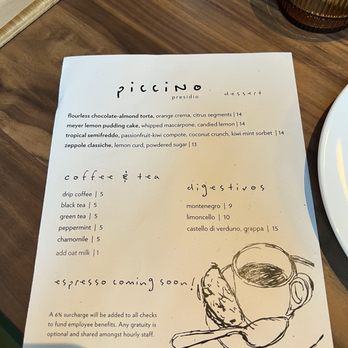 piccino
presidio
dessert
flourless chocolate-almond torta, orange crema, citrus segments | 14
meyer lemon pudding cake, whipped mascarpone, candied lemon | 14
tropical semifreddo, passionfruit-kiwi compote, coconut crunch, kiwi mint sorbet | 14
zeppole classiche, lemon curd, powdered sugar | 13
coffee & tea
drip coffee | 5
black tea | 5
green tea | 5
peppermint | 5
chamomile | 5
add oat milk | 1
digestivos
montenegro | 9
limoncello | 10
castello di verduno, grappa | 15
espresso coming soon!
A 6% surcharge will be added to all checks
to fund employee benefits. Any gratuity is
optional and shared amongst hourly staff.